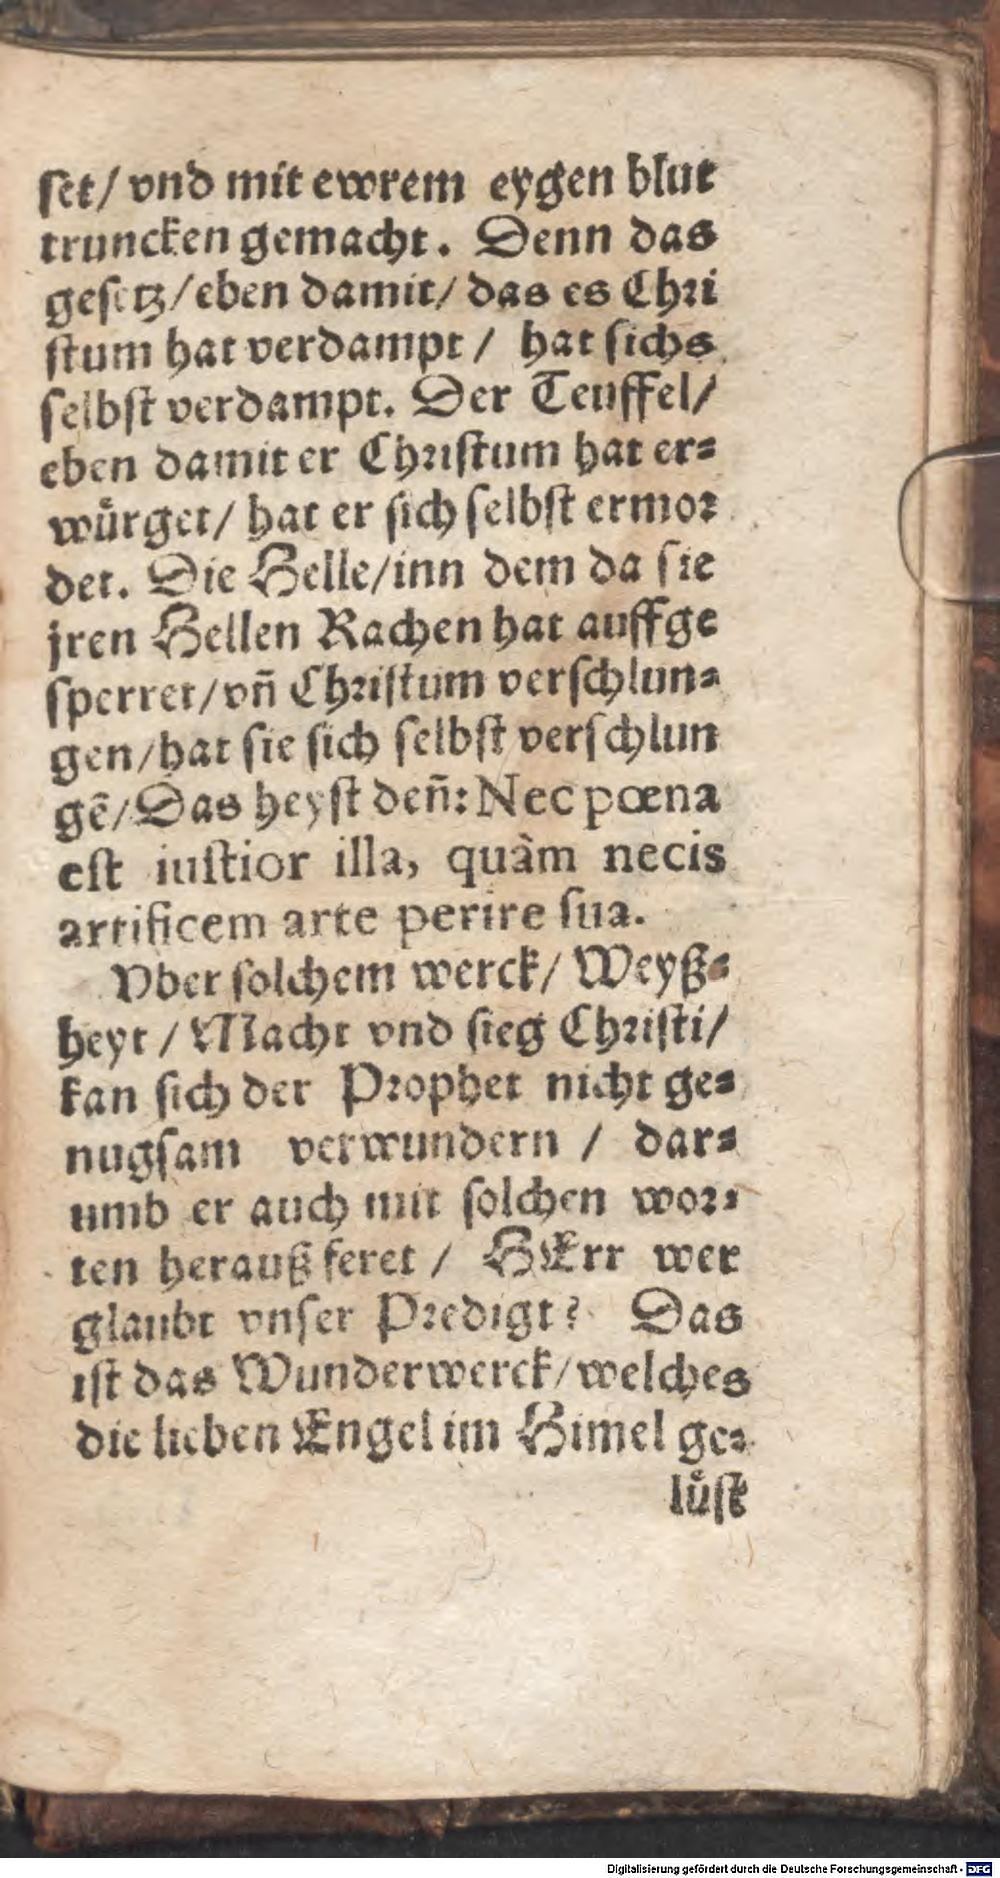 ſet/ vnd mit ewrem eygen blut
truncken gemacht. Denn das
geſetz/ eben damit/ das es Chri
ſtum hat verdampt / hat ſichs
ſelbſt verdampt. Der Teuffel/
eben damit er Chriſtum hat er⸗
wuͤrget/ hat er ſich ſelbſt ermor
det. Die Helle/ inn dem da ſie
jren Hellen Rachen hat auffge
ſperret/ vn̄ Chriſtum verſchlun⸗
gen/ hat ſie ſich ſelbſt verſchlun
gē/ Das heyſt den̄: Nec pœna
eſt iuſtior illa, quàm necis
artificem arte perire ſua.
Vber ſolchem werck/ Weyß⸗
heyt / Macht vnd ſieg Chriſti/
kan ſich der Prophet nicht ge⸗
nugſam verwundern / dar⸗
umb er auch mit ſolchen wor⸗
ten herauß feret / HErr wer
glaubt vnſer Predigt? Das
iſt das Wunderwerck/ welches
die lieben Engel im Himel ge⸗
luͤſt
Digitalisierung gefördert durch die Deutsche Forschungsgemeinschaft - DFG